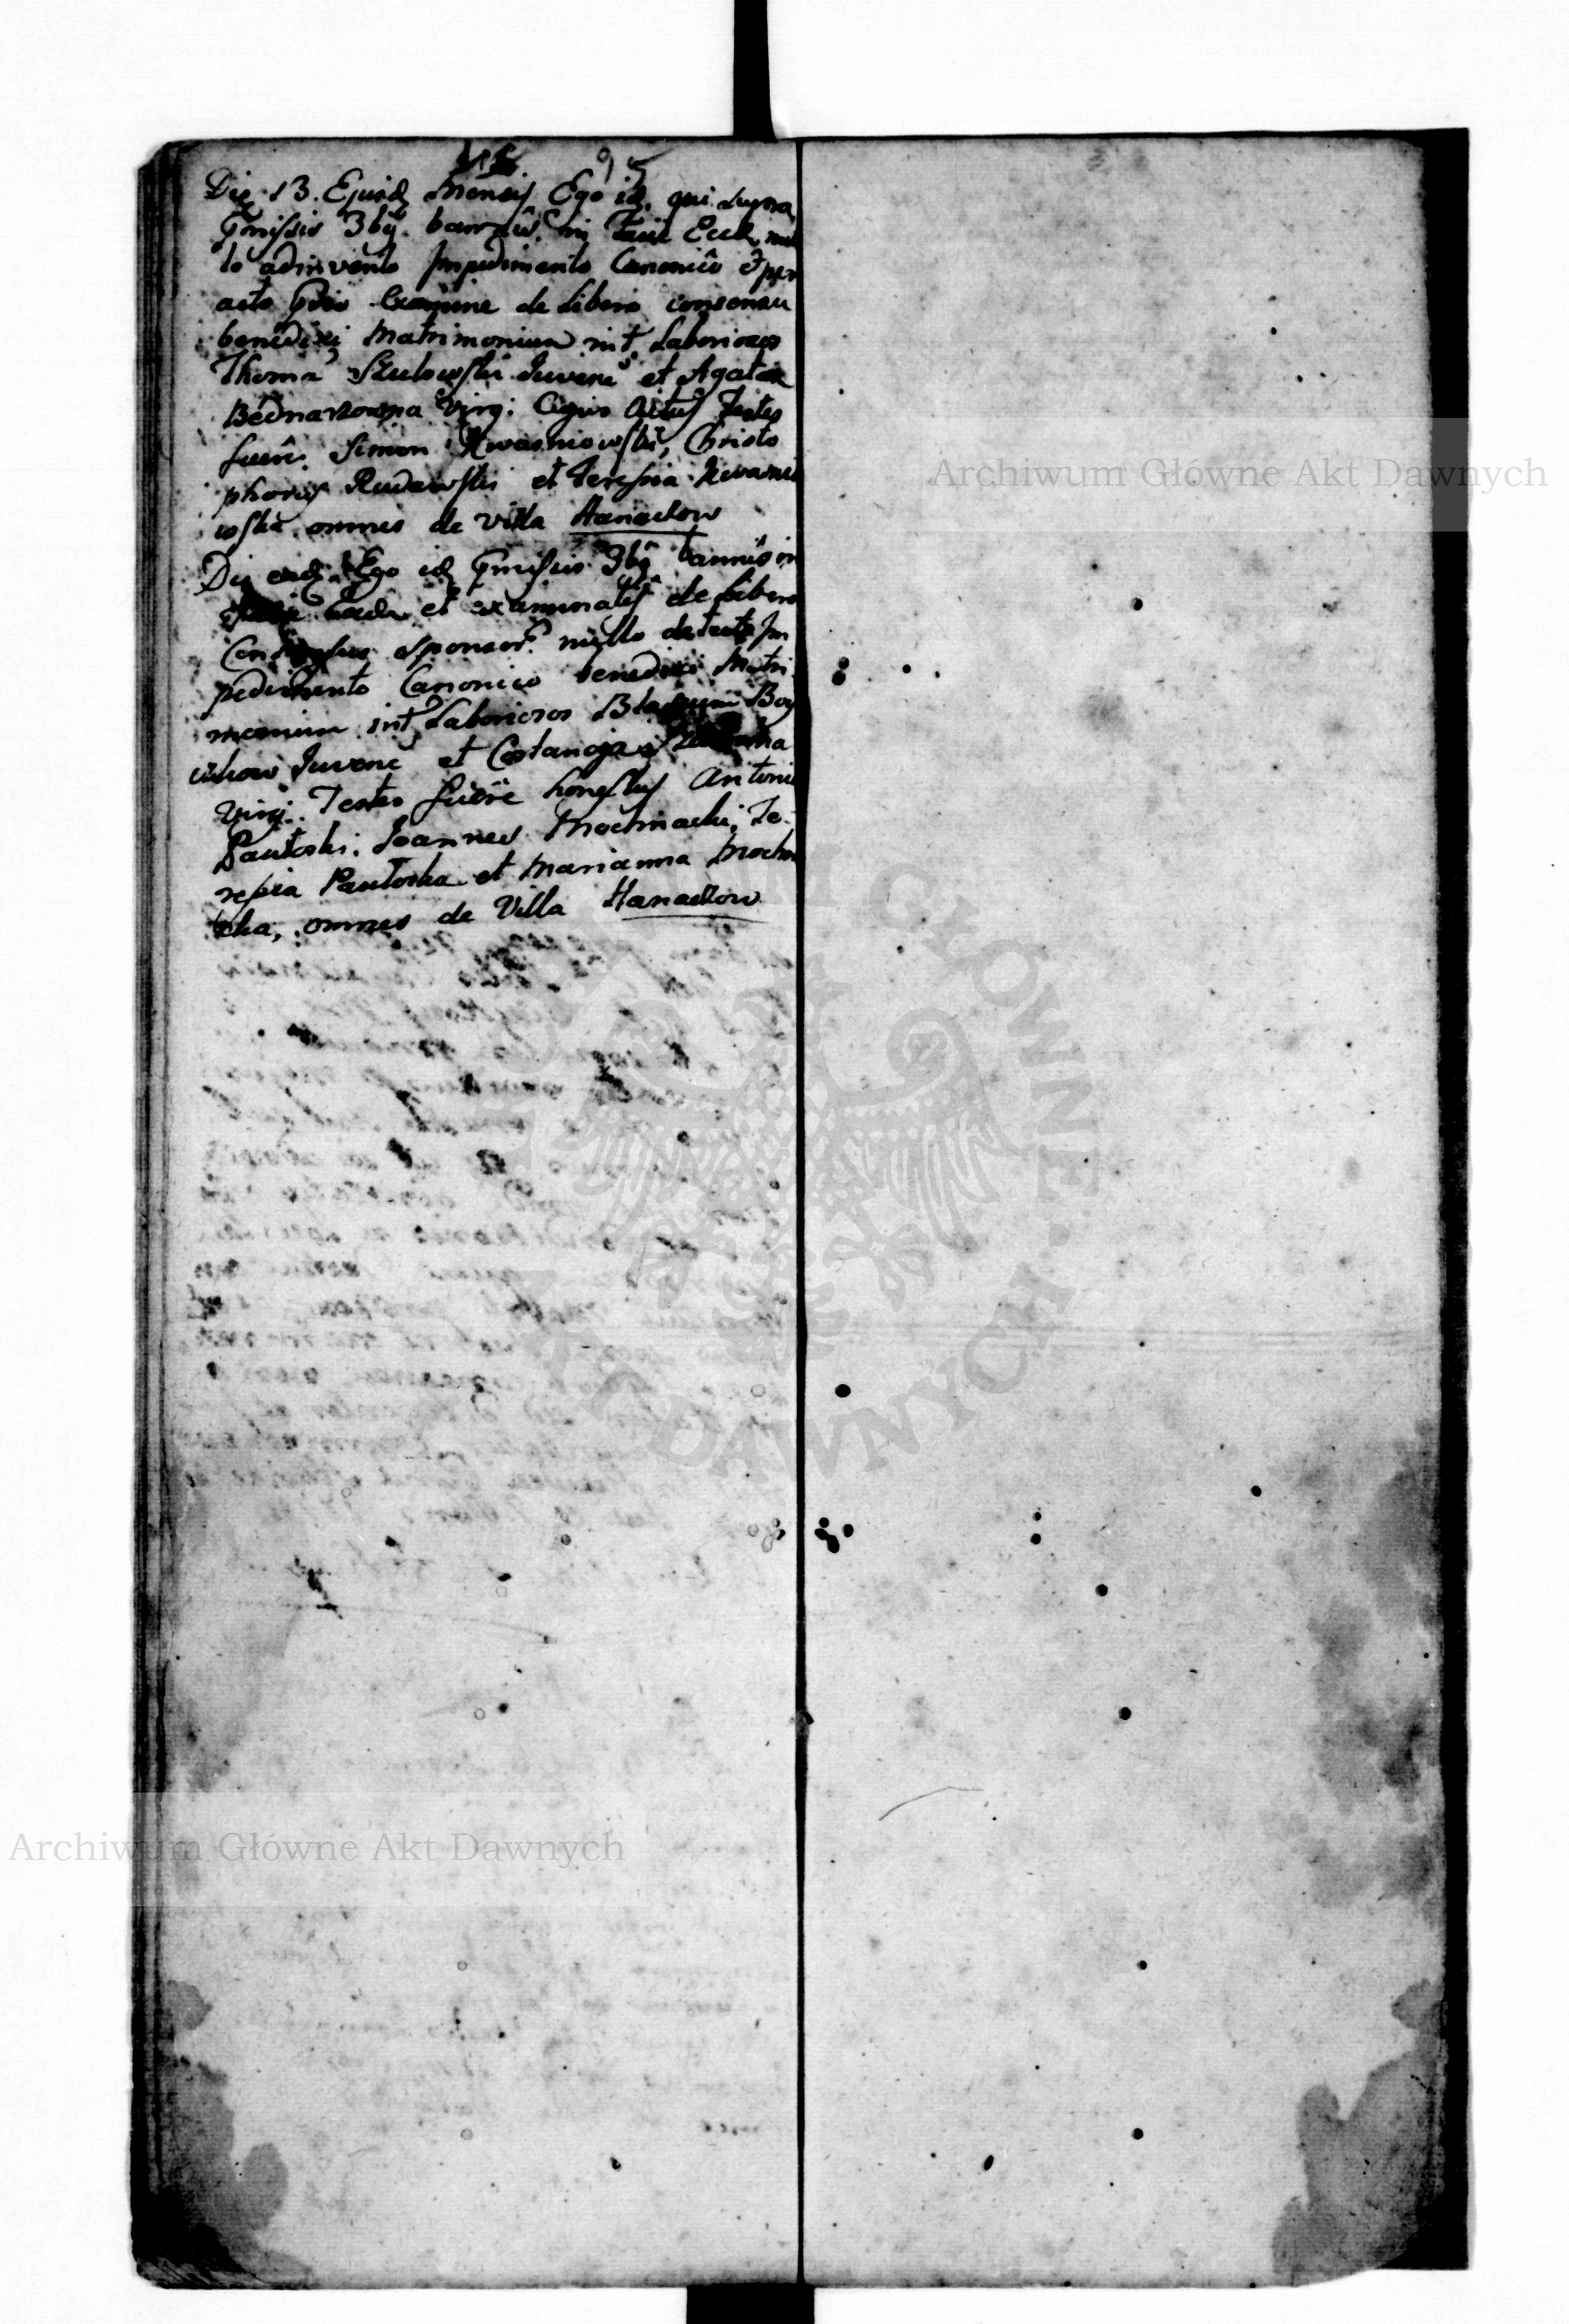 95
Die 13. Ejusd. Mensis Ego id. qui supra
pmissis 3bq. bannis in facie Eccle, nul
lo adinvento Impedimento Canonico et per
acto pvio Examine de libero consensu
benedixi Matrimonium int. Laboriosos
Thoma Szulowski Juvene et Agatha
Bednarzowna Virg: Cujus Actus Testes
fuere. Simon Kwasniowski, Christo
phorus Rudawski et Teresia Kwasni
owska omnes de villa Hanaczow
Die ead. Ego id pmissis 3bq bannis in
Eccla et examinatis de libero
Consensu sponsor. nullo detecto Im
pedimento Canonico benedixi Matri
monium int Laboriosos Blasium Boy
Juvene et Costancja
Virg: Testes fuere honestus Antoni
Pautoski. Joannes Mochnacki, Te
resia Pautoska et Marianna Mochn
cka, omnes de Villa Hanaczow
Archiwum Główne Akt Dawnych
ARCHIWUM GŁÓWNE AKT DAWNYCH
Archiwum Główne Akt Dawnych